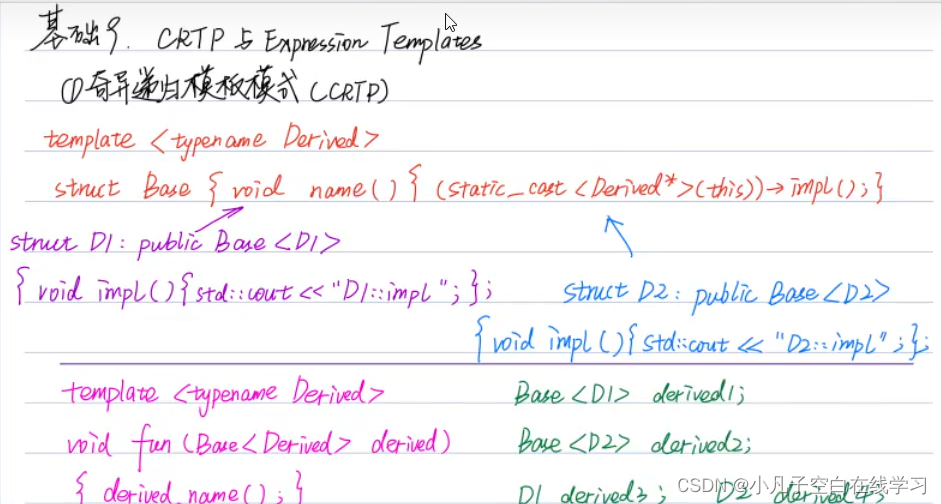 基础9. CRTP 与 Expression Templates
①奇异递归模板模式(CRTP)
template <typename Derived>
struct Base { void name() { (static_cast <Derived*>(this))→impl(); }
struct D1: public Base <D1>
{ void impl(){ std::cout << "D1::impl"; };
struct D2: public Base <D2>
{ void impl(){ std::cout << "D2::impl"; };
template <typename Derived>
Base <D1> derived1;
void fun (Base<Derived> derived)
Base <D2> derived2;
{ derived.name(); }
D1 derived3; D2 derived4;
CSDN @小凡子空白在线学习